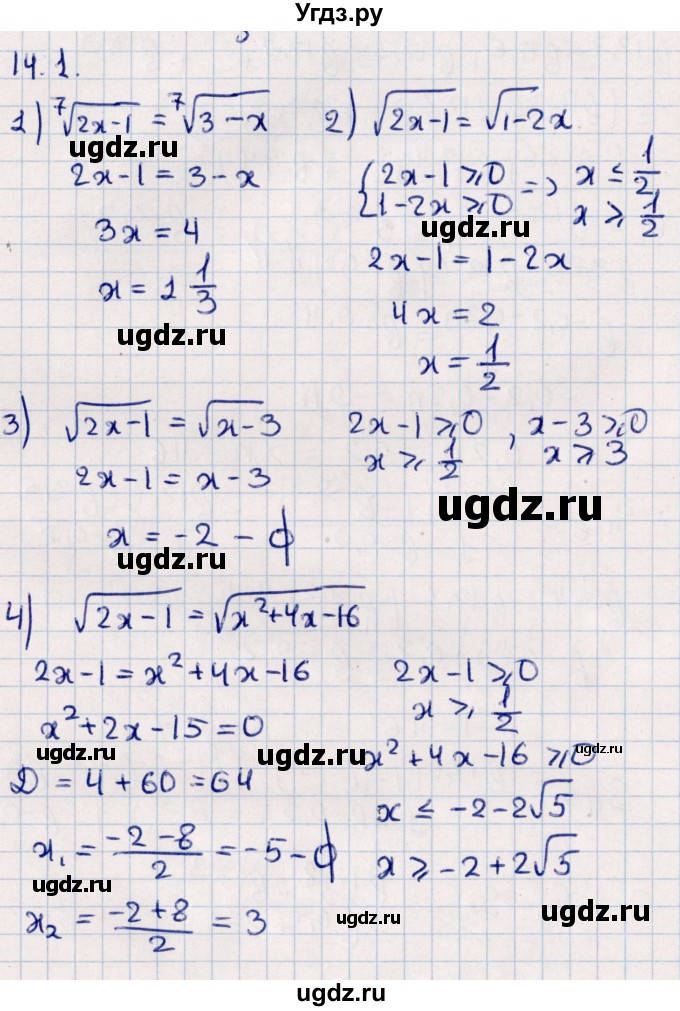 Угдз.ру
14.1.
1) ⁷√(2x-1) = ⁷√(3-x)
ugdz.ru
2x-1 = 3-x
3x = 4
x = 1 1/3
ugdz.ru
2) √(2x-1) = √(1-2x)
{2x-1 ⩾ 0 => x ≤ 1/2
1-2x ⩾ 0 x ⩾ 1/2
ugdz.ru
2x-1 = 1-2x
4x = 2
x = 1/2
3) √(2x-1) = √(x-3)
2x-1 = x-3
x = -2 - ф
ugdz.ru
2x-1 ⩾ 0, x-3 ⩾ 0
x ⩾ 1/2 x ⩾ 3
ugdz.ru
4) √(2x-1) = √(x²+4x-16)
2x-1 = x²+4x-16
x²+2x-15 = 0
ugdz.ru
ugdz.ru
D = 4+60 = 64
x₁ = (-2-8)/2 = -5 - ф
ugdz.ru
x₂ = (-2+8)/2 = 3
2x-1 ⩾ 0
x ⩾ 1/2
ugdz.ru
x²+4x-16 ⩾ 0
x ≤ -2-2√5
x ⩾ -2+2√5
ugdz.ru
ugdz.ru
ugdz.ru